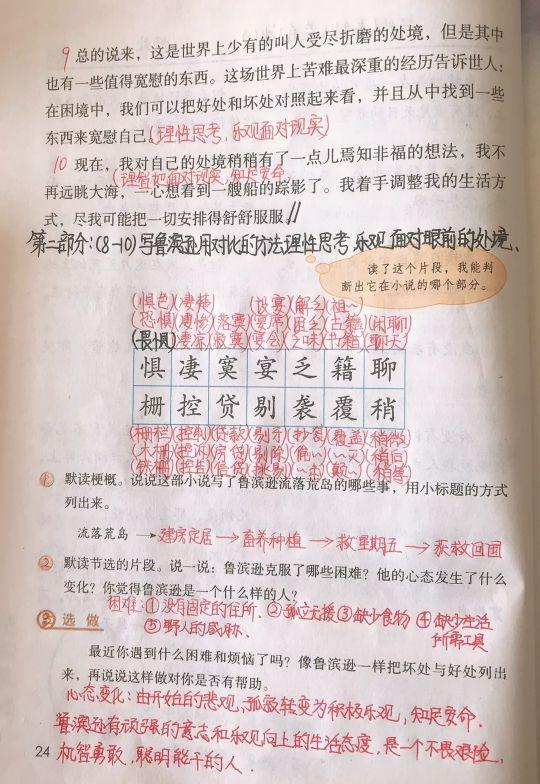 9 总的说来，这是世界上少有的叫人受尽折磨的处境，但是其中
也有一些值得宽慰的东西。这场世界上苦难最深重的经历告诉世人：
在困境中，我们可以把好处和坏处对照起来看，并且从中找到一些
东西来宽慰自己。(理性思考，乐观面对现实)
10 现在，我对自己的处境稍稍有了一点儿焉知非福的想法，我不
(理智地面对现实，知足安命)
再远眺大海，一心想看到一艘船的踪影了。我着手调整我的生活方
式，尽我可能把一切安排得舒舒服服。//
第二部分：(8-10)写鲁滨逊用对比的方法理性思考，乐观面对眼前的处境、
读了这个片段，我能判
断出它在小说的哪个部分。
(惧色)(凄楚)(设宴)(解乏)(祖~)
(恐惧)(凄惨)(落寞)(宴席)(困乏)(古籍)(闲聊)
(畏惧)(凄凉)(寂寞)(宴会)(乏味)(书籍)(聊天)
惧 凄 寞 宴 乏 籍 聊
栅 控 贷 剔 袭 覆 稍
(栅栏)(控制)(贷款)(剔牙)(抄袭)(覆盖)(稍微)
(木栅)(把控)(房贷)(剔除)(偷~)(~灭)(稍后)
(铁栅)(控告)(信贷)(挑剔)(~击)(颠~)(稍等)
1 默读梗概。说说这部小说写了鲁滨逊流落荒岛的哪些事，用小标题的方式
列出来。
流落荒岛 →建房定居→畜养种植→救星期五→获救回国
2 默读节选的片段。说一说：鲁滨逊克服了哪些困难？他的心态发生了什么
变化？你觉得鲁滨逊是一个什么样的人？
困难：①没有固定的住所、②孤立无援 ③缺少食物 ④缺少生活
所需工具
⑤野人的威胁、
3 选做
最近你遇到什么困难和烦恼了吗？像鲁滨逊一样把坏处与好处列出
来，再说说这样做对你是否有帮助。
心态变化：由开始的悲观、孤寂转变为积极乐观，知足安命．
鲁滨逊有顽强的意志和乐观向上的生活态度，是一个不畏艰险，
24 机智勇敢，聪明能干的人．